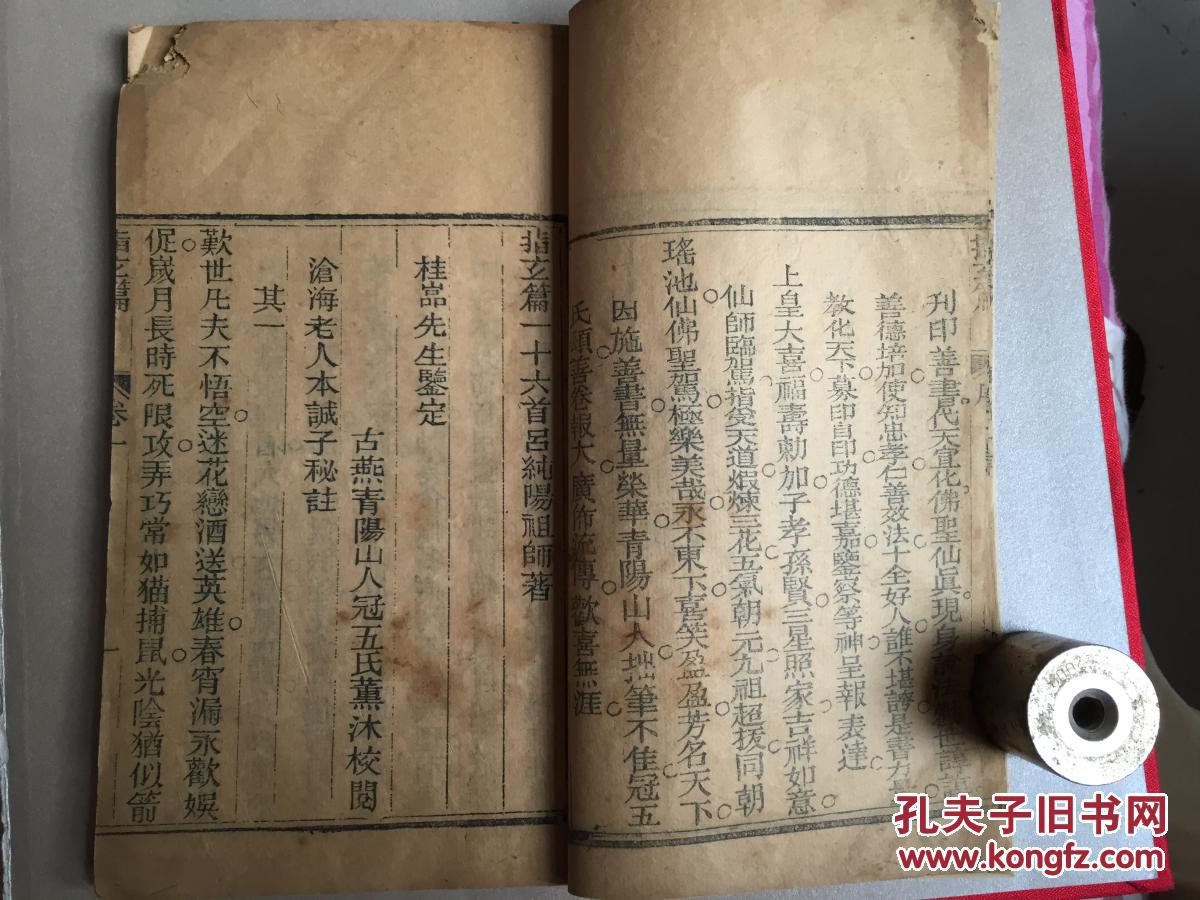 刊印善書代天宣化佛聖仙眞現身說法
善德培加使知忠孝仁善效法十全好人誰不堪誇是書方
教化天下募印自印功德堪嘉鑒察等神呈報表達
上皇大喜福壽勅加子孝孫賢三星照家吉祥如意
仙師臨駕指受天道煆煉三花五氣朝元九祖超拔同朝
瑤池仙佛聖駕極樂美哉永不東下喜笑盈盈芳名天下
因施善書無量榮華青陽山人拙筆不佳冠五
氏願善卷報大廣佈流傳歡喜無涯
指玄篇一十六首呂純陽祖師著
桂嵓先生鑒定
古燕青陽山人冠五氏薰沐校閱
滄海老人本誠子秘註
其一
歎世凡夫不悟空迷花戀酒送英雄春宵漏永歡娛
促嵗月長時死限攻弄巧常如猫捕鼠光陰猶似箭
指玄篇 卷一
孔夫子旧书网
www.kongfz.com